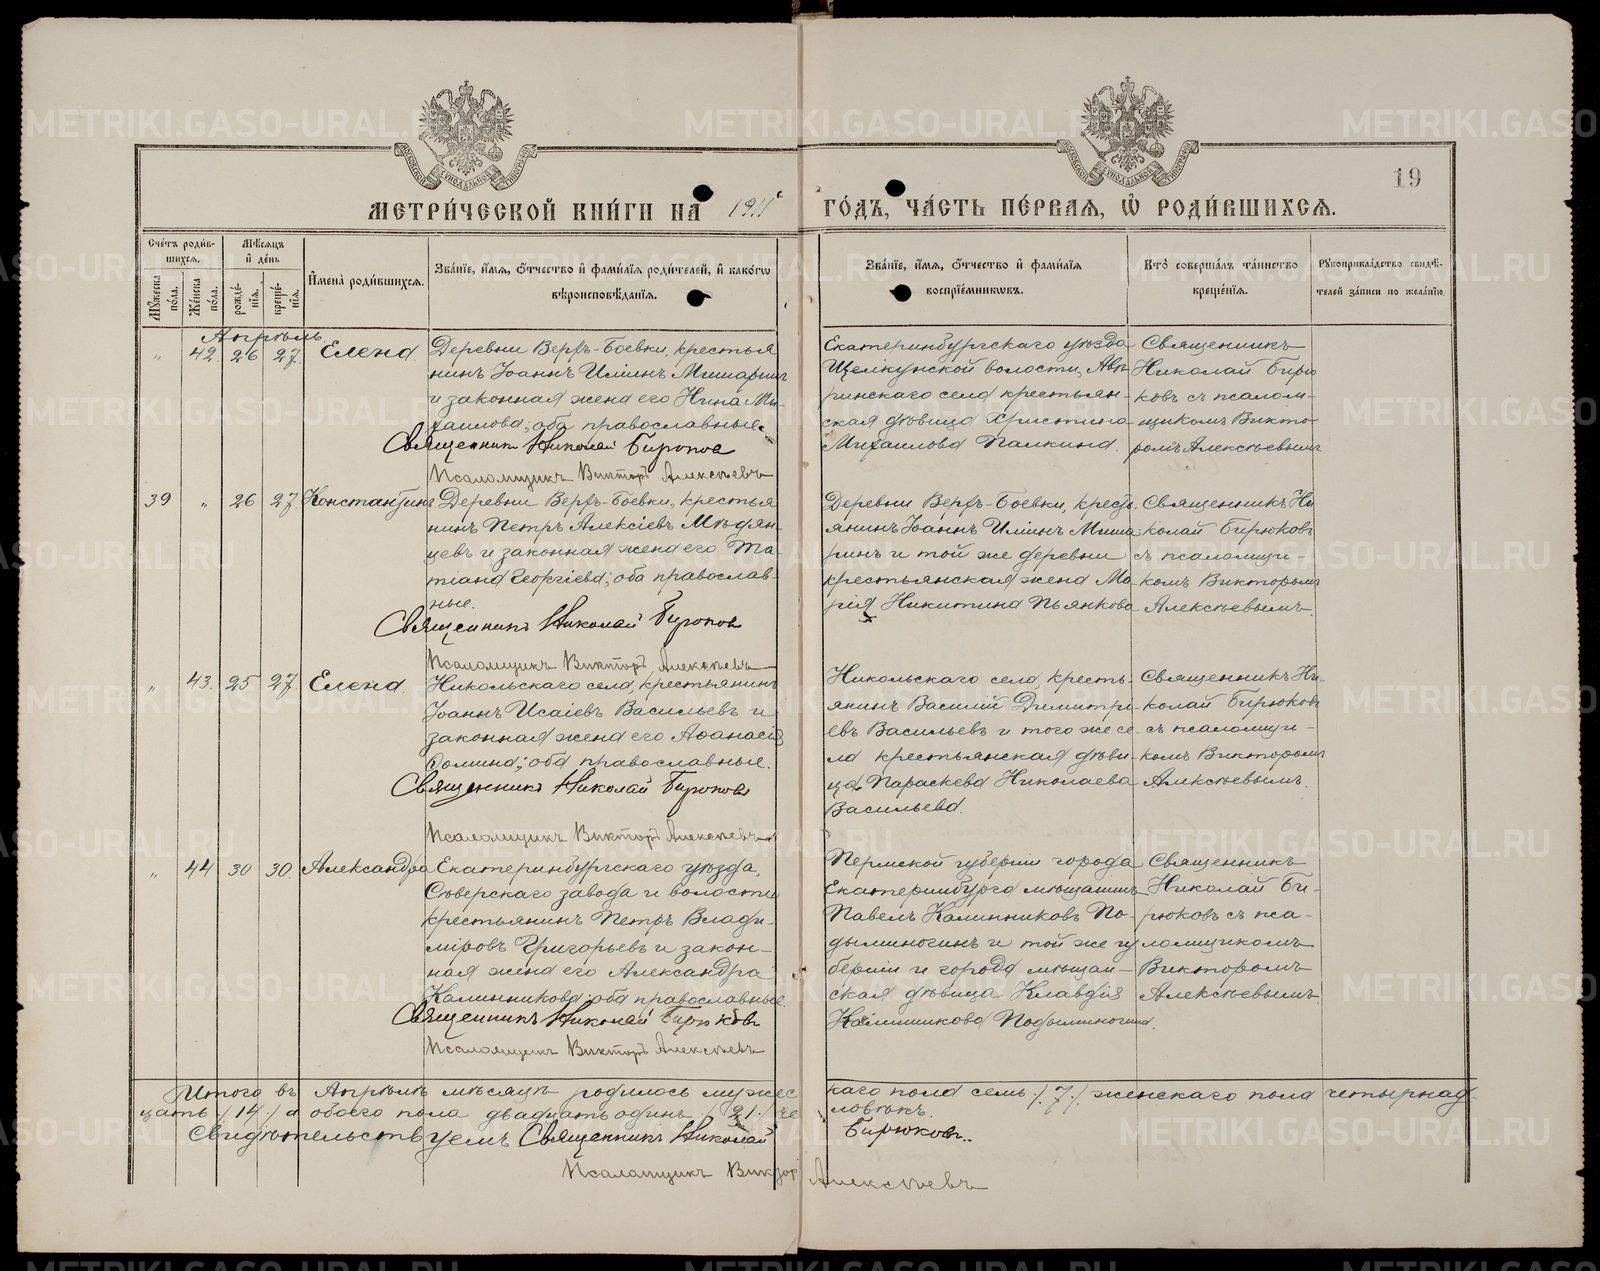 19
МЕТРИ́ЧЕСКОЙ КНИ́ГИ НА 1911 ГО́ДЪ, ЧА́СТЬ ПЕ́РВАѦ, Ѽ РОДИ́ВШИХСѦ.
Сче́тъ роди́вшихсѧ.
Мꙋжеска по́ла.
Же́нска по́ла.
Мѣ́сѧцъ и҆ де́нь
рожде́нїѧ.
креще́нїѧ.
И҆мена̀ роди́вшихсѧ.
Зва́нїе, и҆́мѧ, ѻ҆́тчество и҆ фами́лїѧ роди́телей, и҆ како́гѡ вѣроисповѣ́данїѧ.
Зва́нїе, и҆́мѧ, ѻ҆́тчество и҆ фами́лїѧ воспрїе́мникѡвъ.
Кто̀ соверша́лъ та́инство креще́нїѧ.
Рꙋкоприкла́дство свидѣ́телей за́писи по жела́нїю.
Апрѣль.
„ 42 26 27 Елена
Деревни Верхъ-Боевки, крестья
нинъ Іоаннъ Иліинъ Мишаринъ
и законная жена его Нина Ми-
хаилова; оба православные.
Священникъ Николай Бирюков
Псаломщикъ Викторъ Алексѣевъ
Екатеринбургскаго уѣзда
Щелкунской волости, Ав
ринскаго села крестьян-
ская дѣвица Христина
Михаилова Палкина.
Священникъ
Николай Бирю
ковъ съ псалом-
щикомъ Викто-
ромъ Алексѣевымъ
39 „ 26 27 Константинъ
Деревни Верхъ-Боевки, крестья
нинъ Петръ Алексіевъ Мѣдян-
цевъ и законная жена его Та-
тіана Георгіева; оба православ-
ные.
Священникъ Николай Бирюков
Псаломщикъ Викторъ Алексѣевъ
Деревни Верхъ-Боевки, кресть
янинъ Іоаннъ Иліинъ Миша-
ринъ и той же деревни
крестьянская жена Ма-
рія Никитина Пьянкова
Священникъ Ни
колай Бирюковъ
съ псаломщи-
комъ Викторомъ
Алексѣевымъ.
„ 43. 25 27 Елена.
Никольскаго села, крестьянинъ
Іоаннъ Исаіевъ Васильевъ и
законная жена его Аѳанасія
Ѳомина; оба православные.
Священникъ Николай Бирюков
Псаломщикъ Викторъ Алексѣевъ
Никольскаго села, кресть-
янинъ Василій Димитри-
евъ Васильевъ и того же се-
ла крестьянская дѣви-
ца Параскева Николаева
Васильева.
Священникъ Ни-
колай Бирюковъ
съ псаломщи-
комъ Викторомъ
Алексѣевымъ.
„ 44 30 30. Александра
Екатеринбургскаго уѣзда,
Сѣверскаго завода и волости
крестьянинъ Петръ Влади-
міровъ Григорьевъ и закон-
ная жена его Александра
Калинникова, оба православные.
Священникъ Николай Бирюковъ
Псаломщикъ Викторъ Алексѣевъ
Пермской губерніи города
Екатеринбурга мѣщанинъ
Павелъ Калинниковъ По-
дыминогинъ и той же гу
берніи и города мѣщан-
ская дѣвица Клавдія
Калинникова Подыминогина.
Священникъ
Николай Би-
рюковъ съ пса-
ломщикомъ
Викторомъ
Алексѣевымъ.
Итого въ Апрѣлѣ мѣсяцѣ родилось мужес каго пола семь /. 7 /. женскаго пола четырнад
цать / 14 / а обоего пола двадцать одинъ / 21. / че ловѣкъ.
Свидѣтельствуемъ Священникъ Николай Бирюковъ.
Псаломщикъ Викторъ Алексѣевъ
METRIKI.GASO-URAL.RU